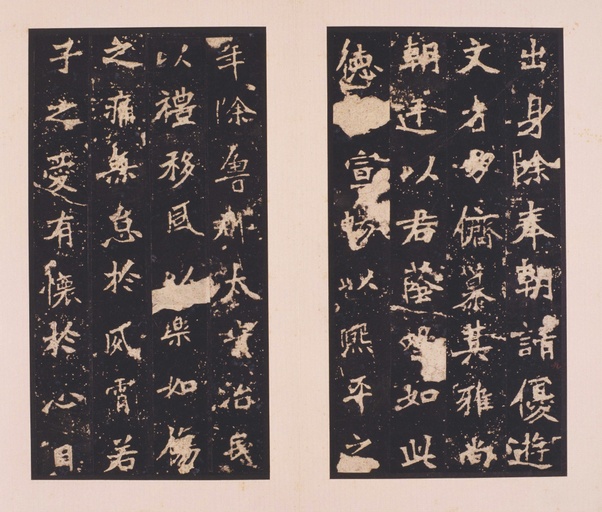 出身除奉朝請優遊
文省朋儕慕其雅尚
朝廷以君蔭望如此
德宣暢以熙平之
年除魯郡太守治民
以禮移風以樂如傷
之痛無怠於夙宵若
子之愛有懷於心目